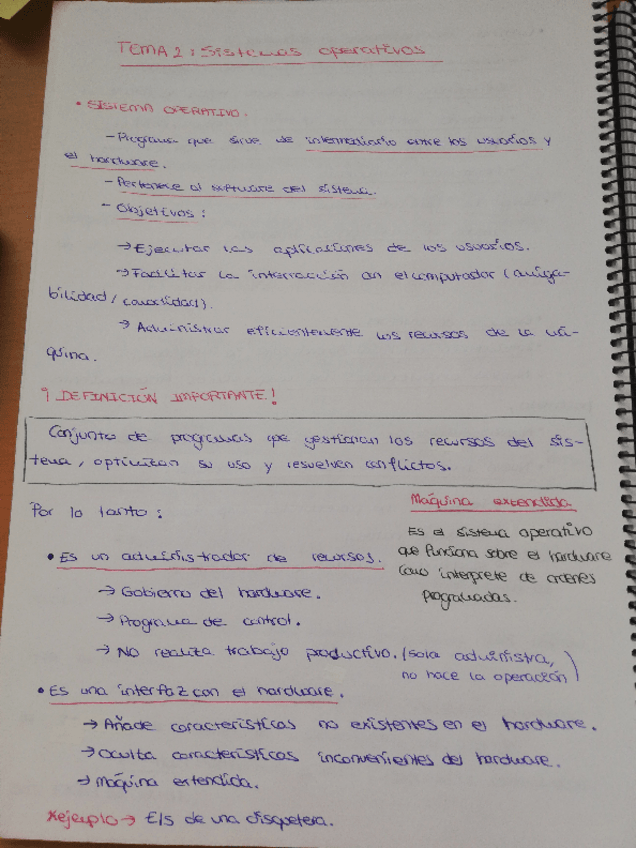 TEMA 2: Sistemas operativos
• SISTEMA OPERATIVO.
- Programa que sirve de intermediario entre los usuarios y
el hardware.
- Pertenece al software del sistema.
- Objetivos:
→ Ejecutar las aplicaciones de los usuarios.
→ Facilitar la interracción con el computador (amiga-
bilidad/comodidad).
→ Administrar eficientemente los recursos de la má-
quina.
¡DEFINICIÓN IMPORTANTE!
Conjunto de programas que gestionan los recursos del sis-
tema, optimizan su uso y resuelven conflictos.
Por lo tanto:
• Es un administrador de recursos.
→ Gobierno del hardware.
→ Programa de control.
→ No realiza trabajo productivo. (solo administra,
no hace la operación)
Máquina extendida
Es el sistema operativo
que funciona sobre el hardware
como interprete de ordenes
programadas.
• Es una interfaz con el hardware.
→ Añade características no existentes en el hardware.
→ Oculta características inconvenientes del hardware.
→ Máquina extendida.
Ejemplo → E/S de una disquetera.